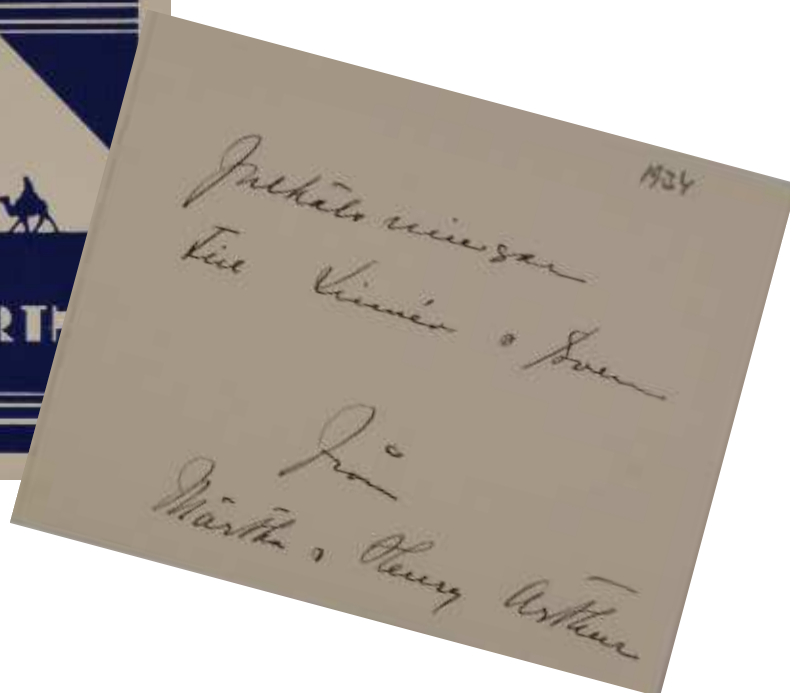 RTH
1934
Julkälsningar
Till Linnéa o Sven
Från
Märtha o Henry Arthur